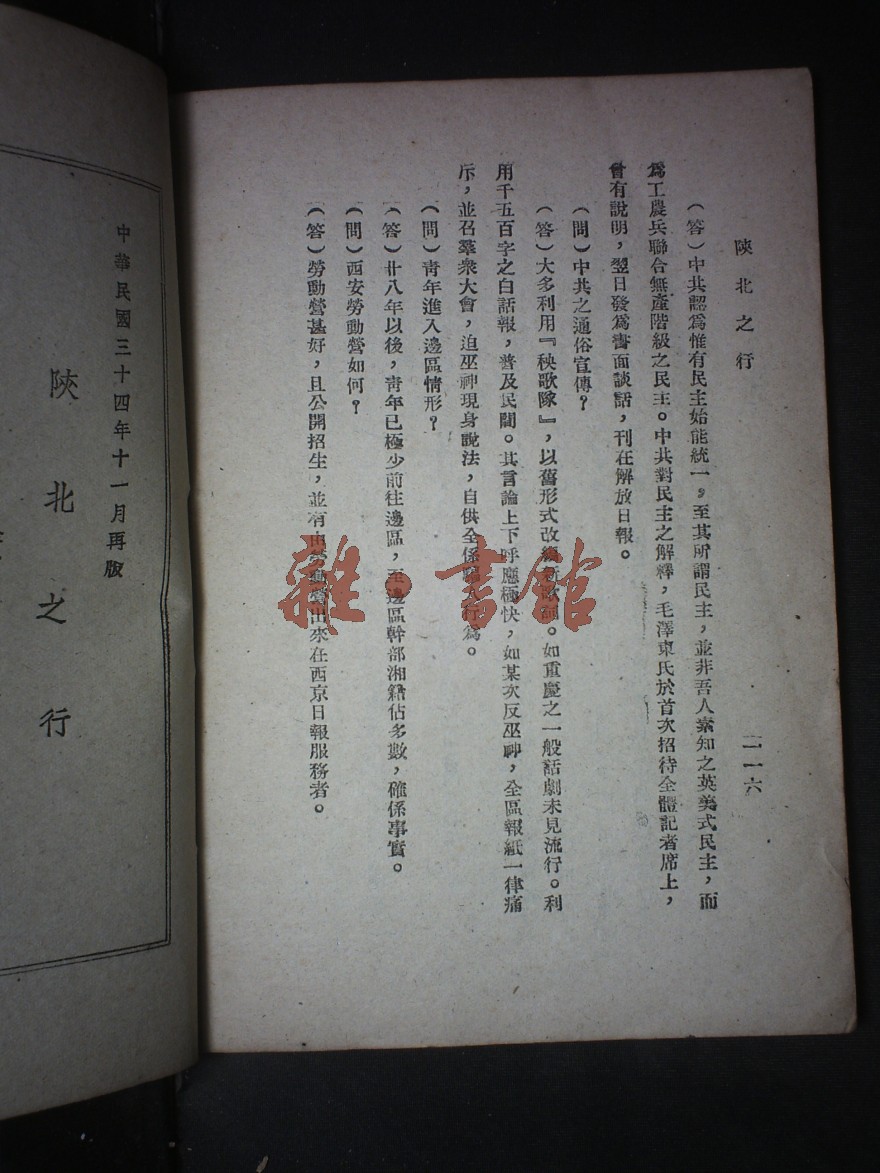 陝北之行
二一六
(答)中共認爲惟有民主始能統一。至其所謂民主，並非吾人素知之英美式民主，而
爲工農兵聯合無產階級之民主。中共對民主之解釋，毛澤東氏於首次招待全體記者席上，
曾有說明，翌日發爲書面談話，刊在解放日報。
(問)中共之通俗宣傳？
(答)大多利用『秧歌隊』，以舊形式改編新歌詞。如重慶之一般話劇未見流行。利
用千五百字之白話報，普及民間。其言論上下呼應極快，如某次反巫神，全區報紙一律痛
斥，並召羣衆大會，迫巫神現身說法，自供全係騙人行爲。
(問)青年進入邊區情形？
(答)廿八年以後，青年已極少前往邊區，至邊區幹部湘籍佔多數，確係事實。
(問)西安勞動營如何？
(答)勞動營甚好，且公開招生，並有由勞動營出來在西京日報服務者。
中華民國三十四年十一月再版
陝北之行
雜·書館